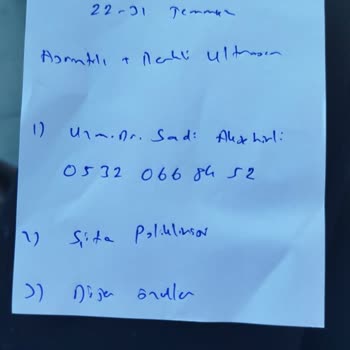 22-31 Temmuz
Ayrıntılı + Renkli Ultrason
1) Uzm. Dr. Sadi
0532 066 84 52
2) Şifa Polikliniği
3) Diğer